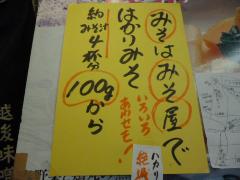 みそはみそ屋で
はかりみそ
いろいろあわせも!
100gから
約みそ汁4杯分
ハカリ
越後味噌